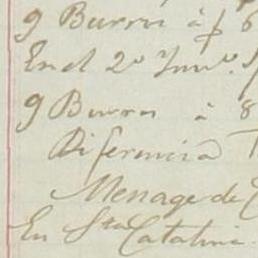 9 Burros á $ 6
En el 2º Invº.
9 Burros á 8
Diferencia
Menage de
En Sta Catalina.